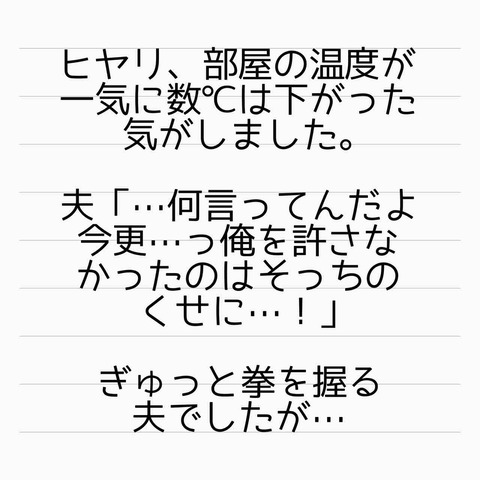 ヒヤリ、部屋の温度が
一気に数℃は下がった
気がしました。
夫「…何言ってんだよ
今更…っ俺を許さな
かったのはそっちの
くせに…！」
ぎゅっと拳を握る
夫でしたが…